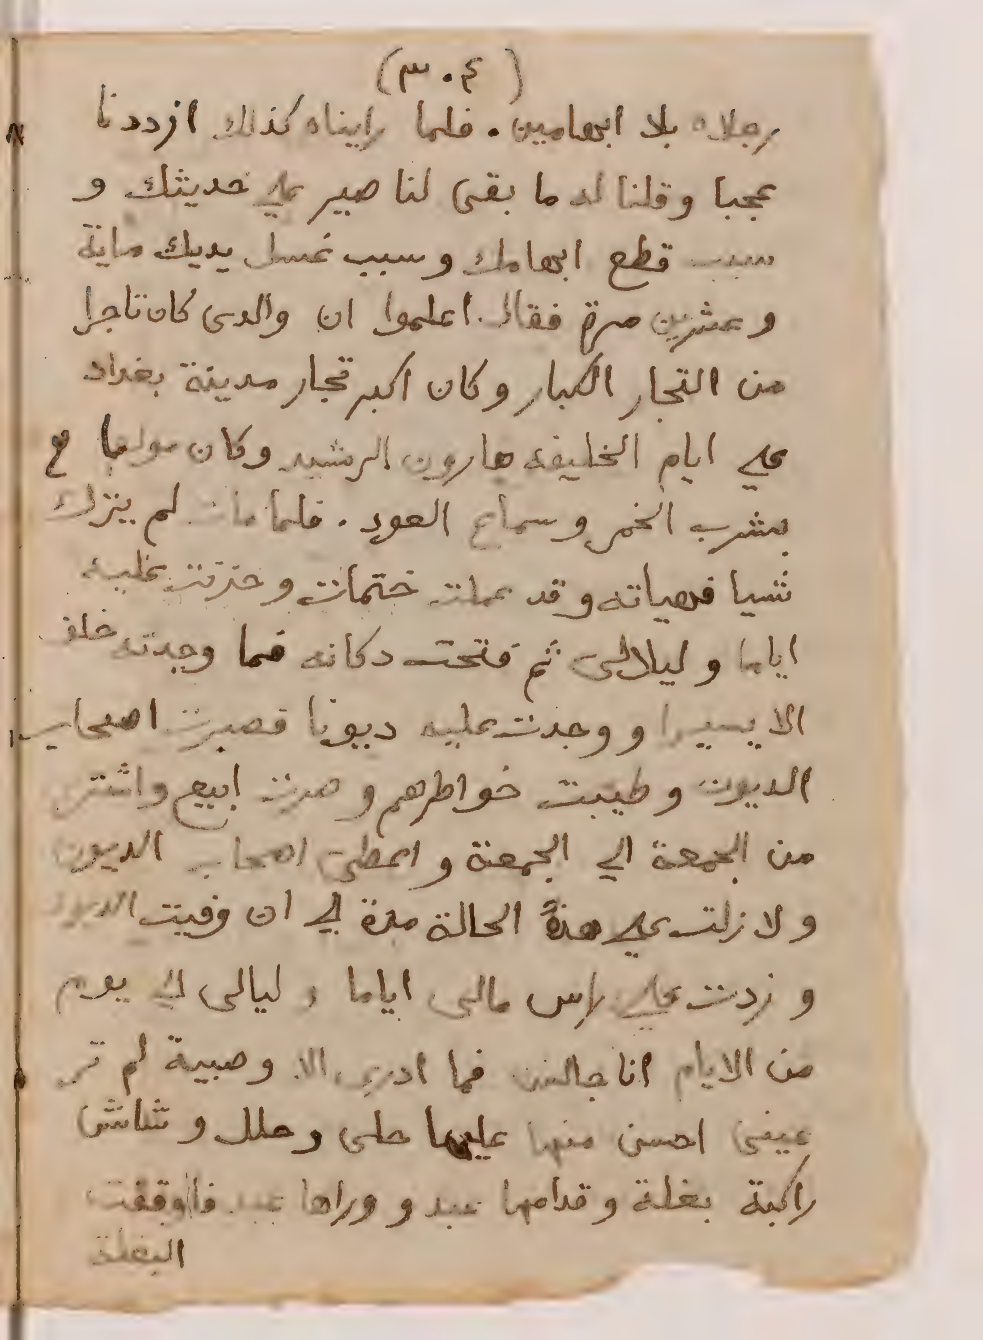 (٣٠٤)
رجلاه بلا ابهامين. فلما رايناه كذلك ازددنا
عجبا وقلنا له ما بقى لنا صبر علي حديثك و
سبب قطع ابهامك وسبب غسل يديك ماية
وعشرين مرة فقال. اعلموا ان والدى كان تاجرا
من التجار الكبار وكان اكبر تجار مدينة بغداد
علي ايام الخليفه هارون الرشيد وكان مولعا
بشرب الخمر وسماع العود. فلما مات لم يترك
شيا وقد عملت ختمات وحزنت عليه
اياما و ليلالى ثم فتحت دكانه فما وجدته خلف
الا يسيرا و وجدت عليه ديونا فصبرت اصحاب
الديون وطيبت خواطرهم وصرت ابيع واشترى
من الجمعة الي الجمعة و اعطى اصحاب الديون
و لا زلت علي هذة الحالة مدة الي ان وفيت الديون
و زدت علي راس مالى اياما و ليالى الي يوم
من الايام انا جالس فما ادرى الا وصبية لم تر
عينى احسن منها عليها حلى وحلل و شاش
راكبة بغلة و قدامها عبد و وراها عبد فاوقفت
البغلة